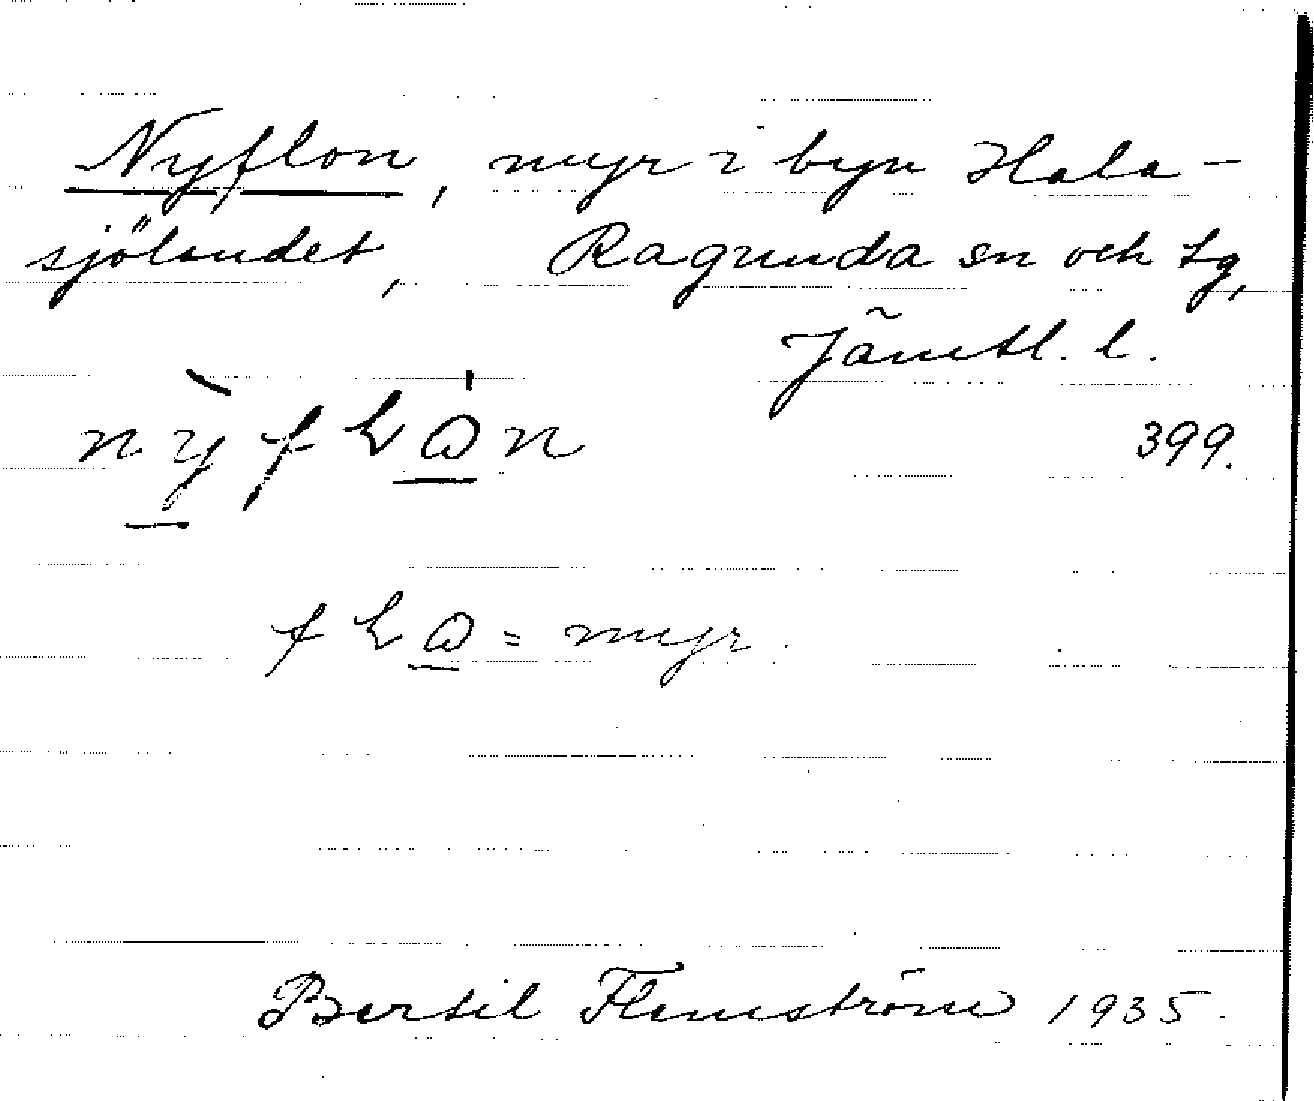 Nyflon, myr i byn Hala-
sjölandet, Ragunda sn och tg,
Jämtl. l.
399.
= myr.
Bertil Flemström 1935.